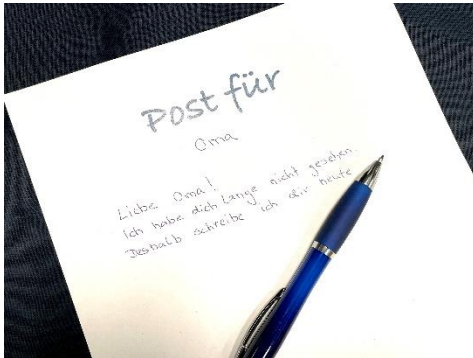 Post für
Oma
Liebe Oma!
Ich habe dich lange nicht gesehen.
Deshalb schreibe ich dir heute